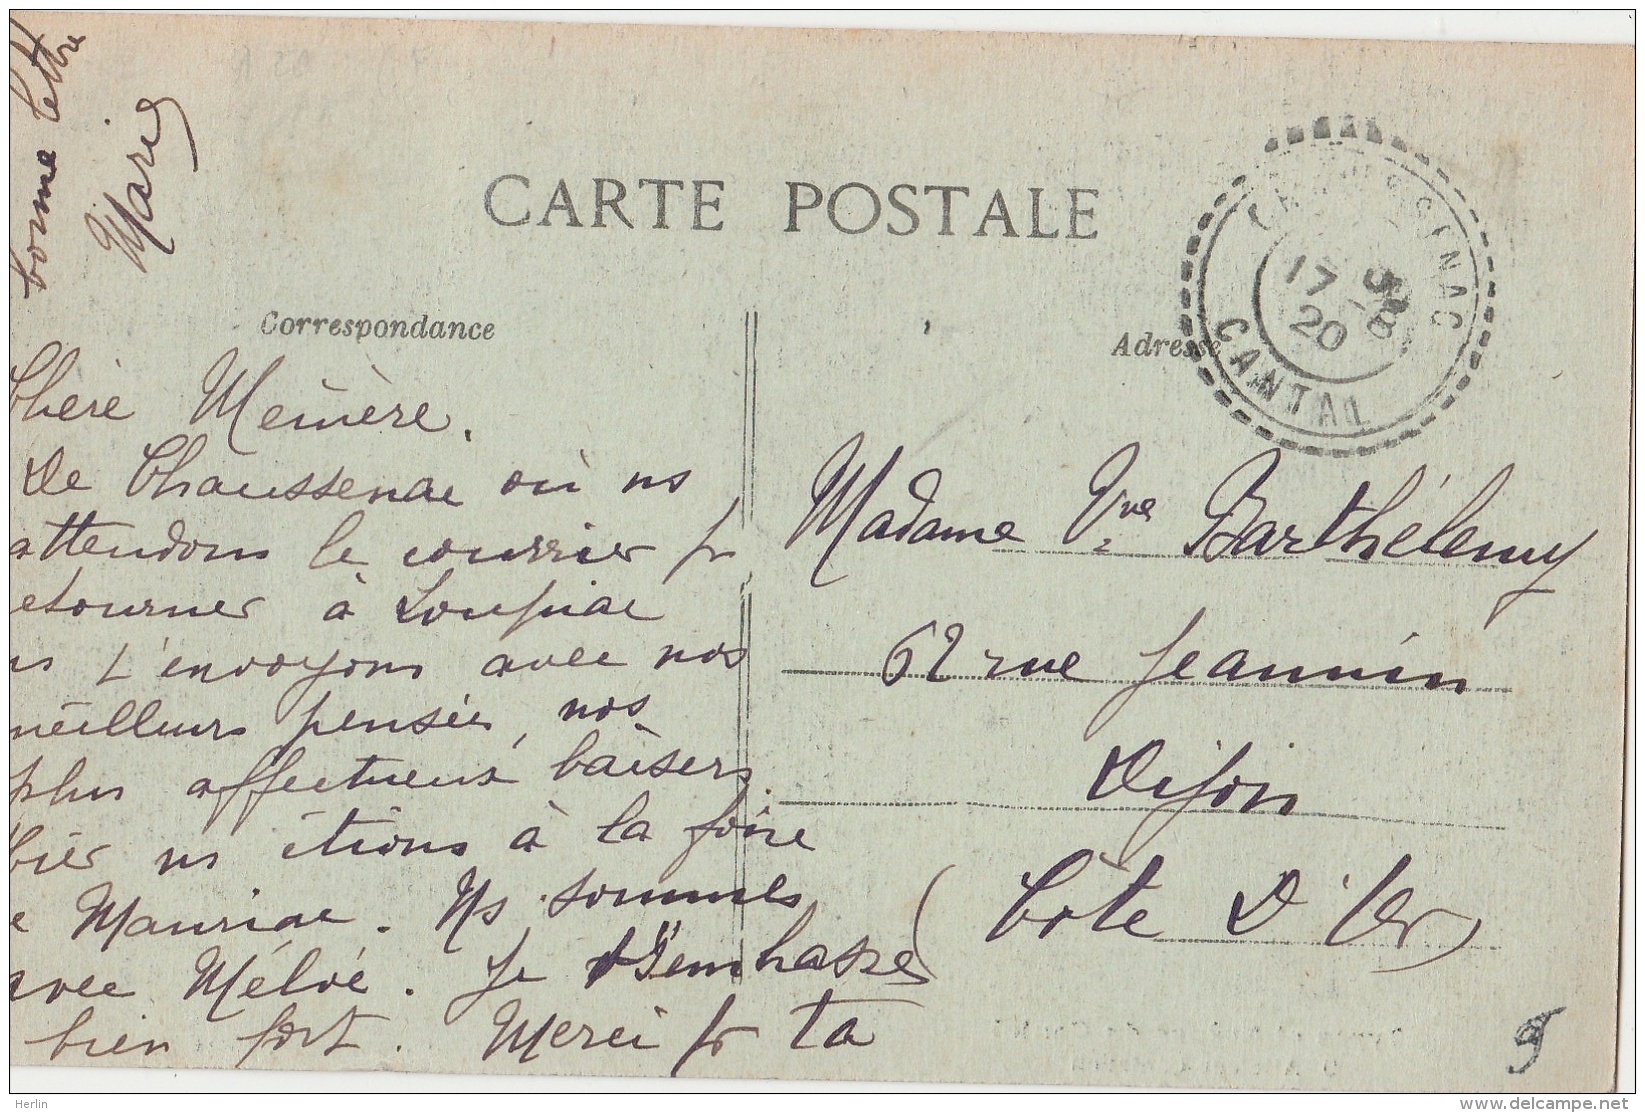 CARTE POSTALE
Correspondance
Adresse
17 -8
20
CANTAL
Chère Mémère.
De Chaussenac où ns
attendons le courrier pr
retourner à Loupiac
ns t'envoyons avec nos
meilleurs pensée, nos
plus affectueux baisers
hier ns étions à la foire
de Mauriac. Ns sommes
avec Mélie. Je t'embrasse
bien fort. Merci pr ta
bonne lettre
Marie
Madame Vve Barthélemy
62 rue Jeannin
Dijon
(Côte D'Or)
Herlin
delcampe.net